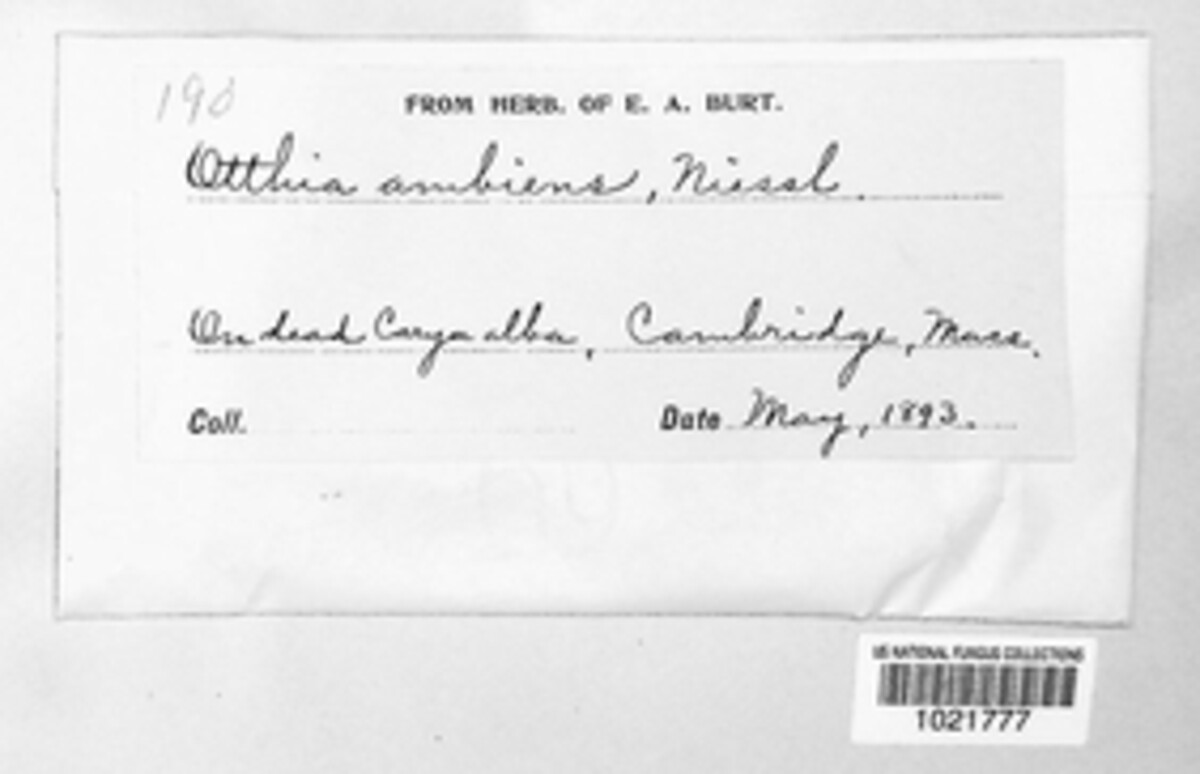 FROM HERB. OF E. A. BURT.
Otthia ambiens, Niessl.
On dead Carya alba, Cambridge, Mass.
Coll. Date May, 1893.
US NATIONAL FUNGUS COLLECTIONS
1021777